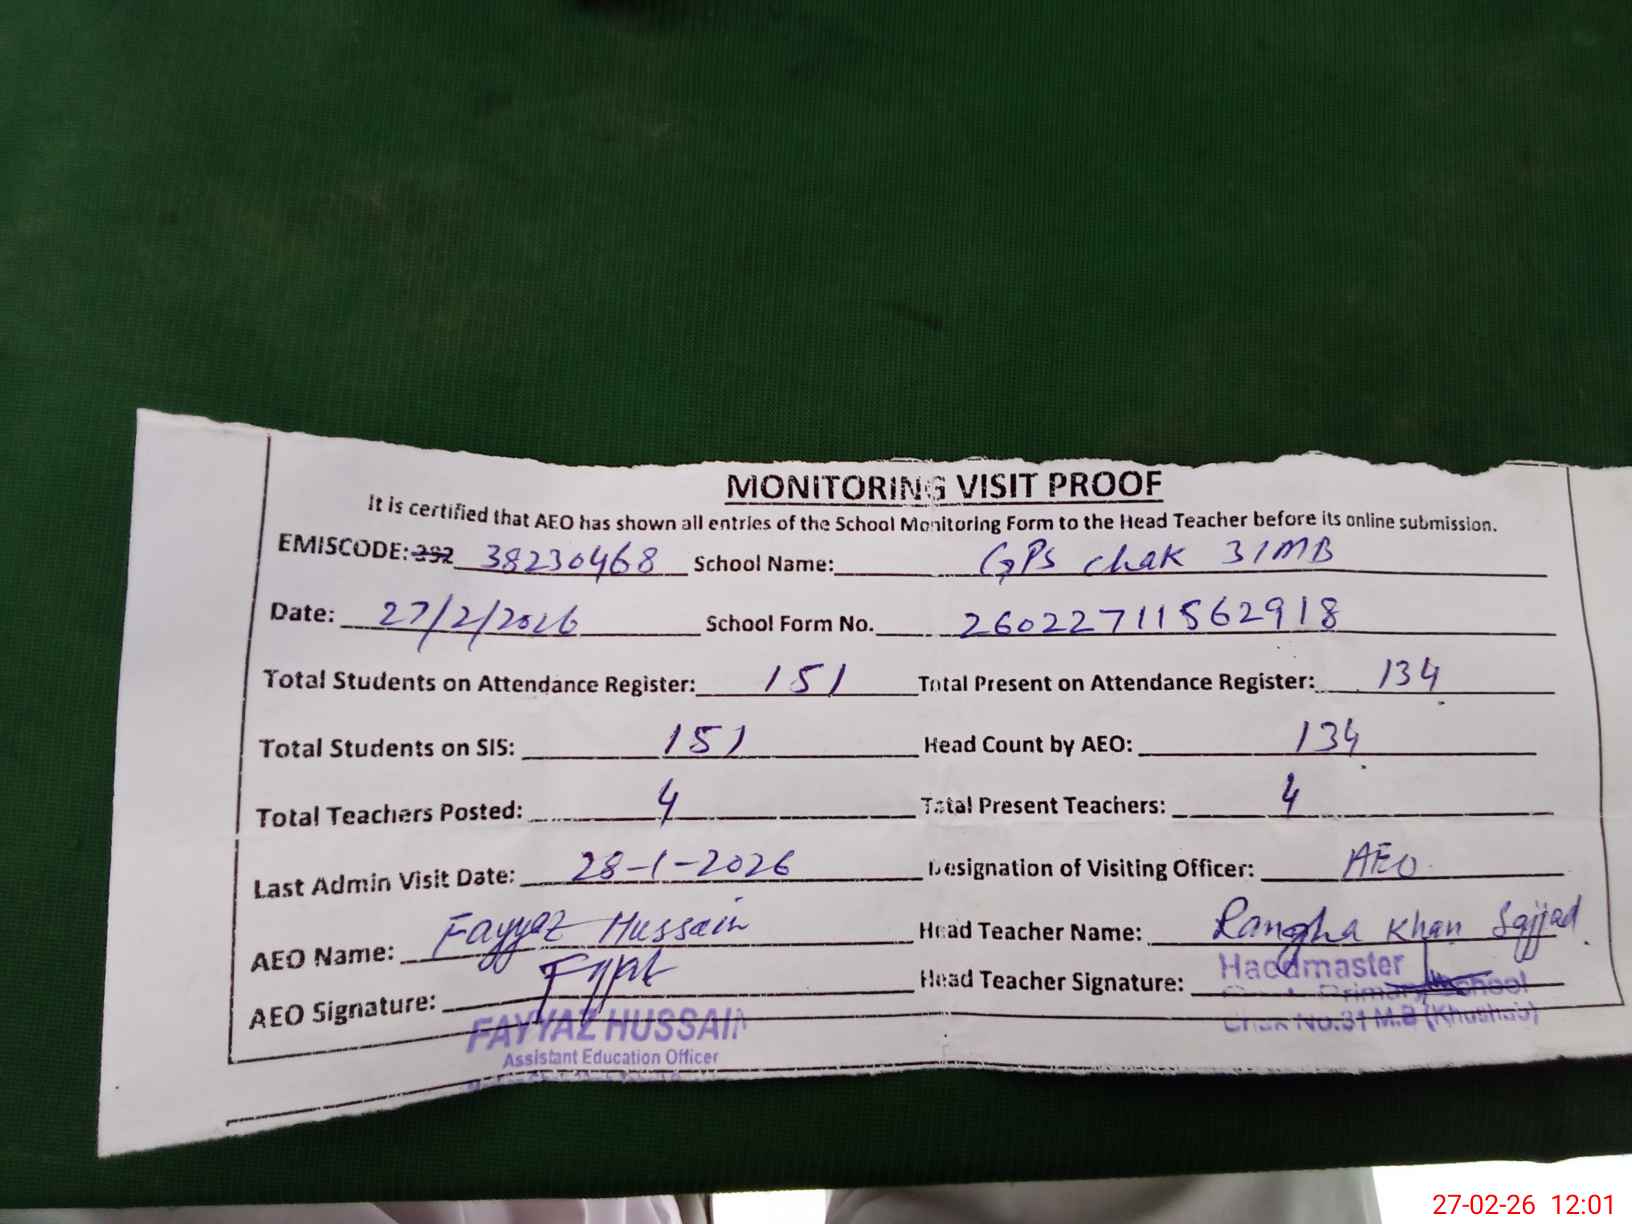 MONITORING VISIT PROOF
It is certified that AEO has shown all entries of the School Monitoring Form to the Head Teacher before its online submission.
EMISCODE: 382 38230468 School Name: GPS chak 31MB
Date: 27/2/2026 School Form No. 26022711562918
Total Students on Attendance Register: 151 Total Present on Attendance Register: 134
Total Students on SIS: 151 Head Count by AEO: 134
Total Teachers Posted: 4 Total Present Teachers: 4
Last Admin Visit Date: 28-1-2026 Designation of Visiting Officer: AEO
AEO Name: Fayyaz Hussain Head Teacher Name: Rangha Khan Sajjad
AEO Signature: Head Teacher Signature:
Headmaster
Primary School
Chak No.31 M.B (Khushab)
FAYYAZ HUSSAIN
Assistant Education Officer
27-02-26 12:01